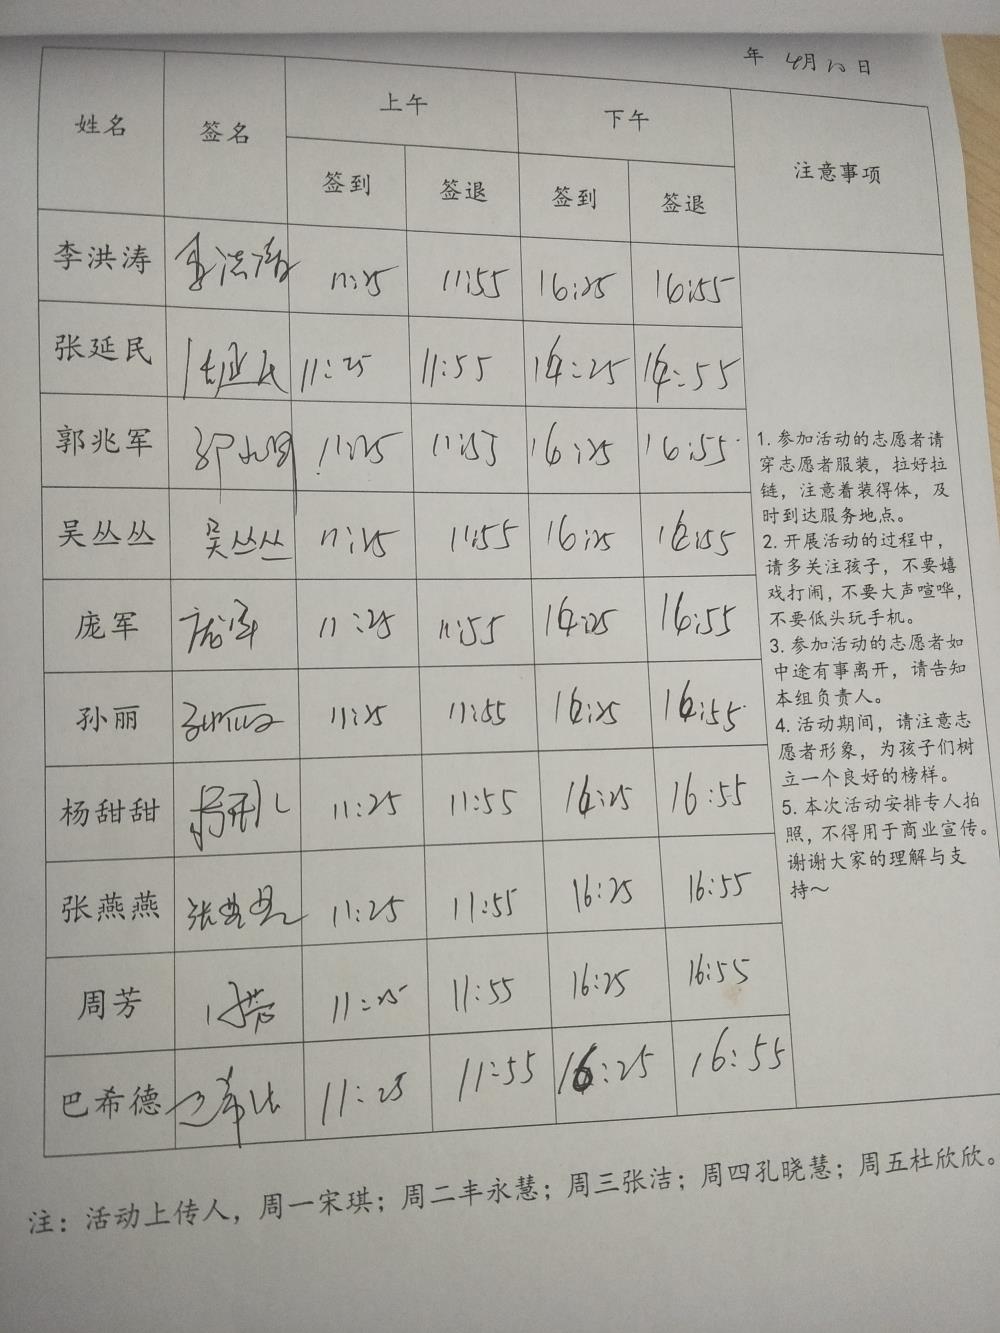 年 4月10日
姓名 签名 上午 下午 注意事项
签到 签退 签到 签退
李洪涛 李洪涛 11:25 11:55 16:25 16:55
张延民 张延民 11:25 11:55 16:25 16:55
郭兆军 11:25 11:55 16:25 16:55
吴丛丛 吴丛丛 11:25 11:55 16:25 16:55
庞军 庞军 11:25 11:55 16:25 16:55
孙丽 孙丽 11:25 11:55 16:25 16:55
杨甜甜 11:25 11:55 16:25 16:55
张燕燕 张燕燕 11:25 11:55 16:25 16:55
周芳 周芳 11:25 11:55 16:25 16:55
巴希德 巴希德 11:25 11:55 16:25 16:55
1. 参加活动的志愿者请
穿志愿者服装，拉好拉
链，注意着装得体，及
时到达服务地点。
2. 开展活动的过程中，
请多关注孩子，不要嬉
戏打闹，不要大声喧哗，
不要低头玩手机。
3. 参加活动的志愿者如
中途有事离开，请告知
本组负责人。
4. 活动期间，请注意志
愿者形象，为孩子们树
立一个良好的榜样。
5. 本次活动安排专人拍
照，不得用于商业宣传。
谢谢大家的理解与支
持～
注：活动上传人，周一宋琪；周二丰永慧；周三张洁；周四孔晓慧；周五杜欣欣。